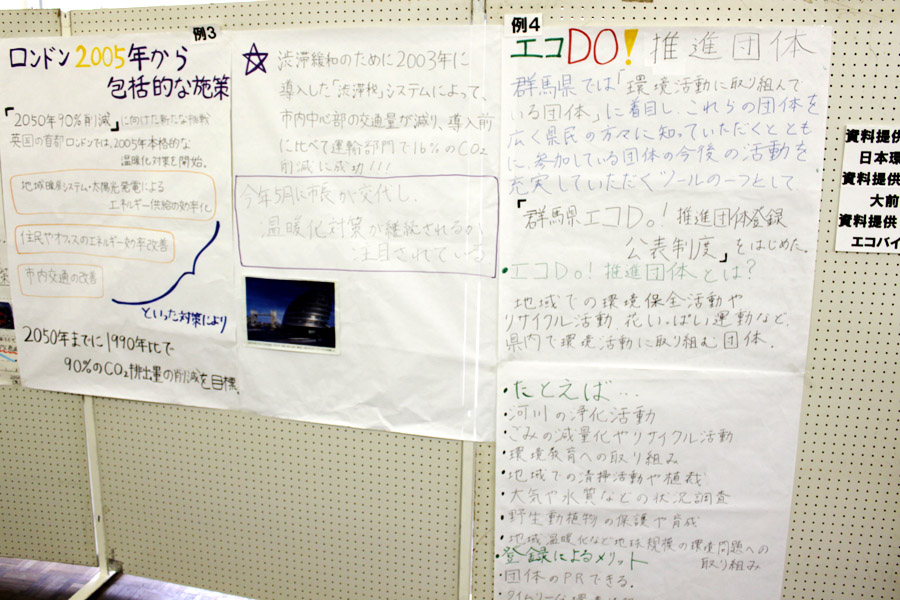 例3
ロンドン2005年から
包括的な施策
「2050年90%削減」に向けた新たな挑戦
英国の首都ロンドンでは、2005年本格的な
温暖化対策を開始。
地域暖房システム・太陽光発電による
エネルギー供給の効率化
住民やオフィスのエネルギー効率改善
市内交通の改善
といった対策により
2050年までに1990年比で
90%のCO2排出量の削減を目標。
☆ 渋滞緩和のために2003年に
導入した「渋滞税」システムによって、
市内中心部の交通量が減り、導入前
に比べて運輸部門で16%のCO2
削減に成功!!!
今年5月に市長が交代し、
温暖化対策が継続されるか
注目されている
例4
エコDO!推進団体
群馬県では「環境活動に取り組んで
いる団体」に着目し、これらの団体を
広く県民の方々に知っていただくととも
に、参加している団体の今後の活動を
充実していただくツールの一つとして
「群馬県エコDo!推進団体登録
公表制度」をはじめた。
・エコDo!推進団体とは?
地域での環境保全活動や
リサイクル活動、花いっぱい運動など、
県内で環境活動に取り組む団体.
・たとえば…
・河川の浄化活動
・ごみの減量化やリサイクル活動
・環境教育への取り組み
・地域での清掃活動や植栽
・大気や水質などの状況調査
・野生動植物の保護や育成
・地域温暖化など地球規模の環境問題への
取り組み
・登録によるメリット
・団体のPRできる.
資料提供
日本環
資料提供
大前
資料提供
エコバイ